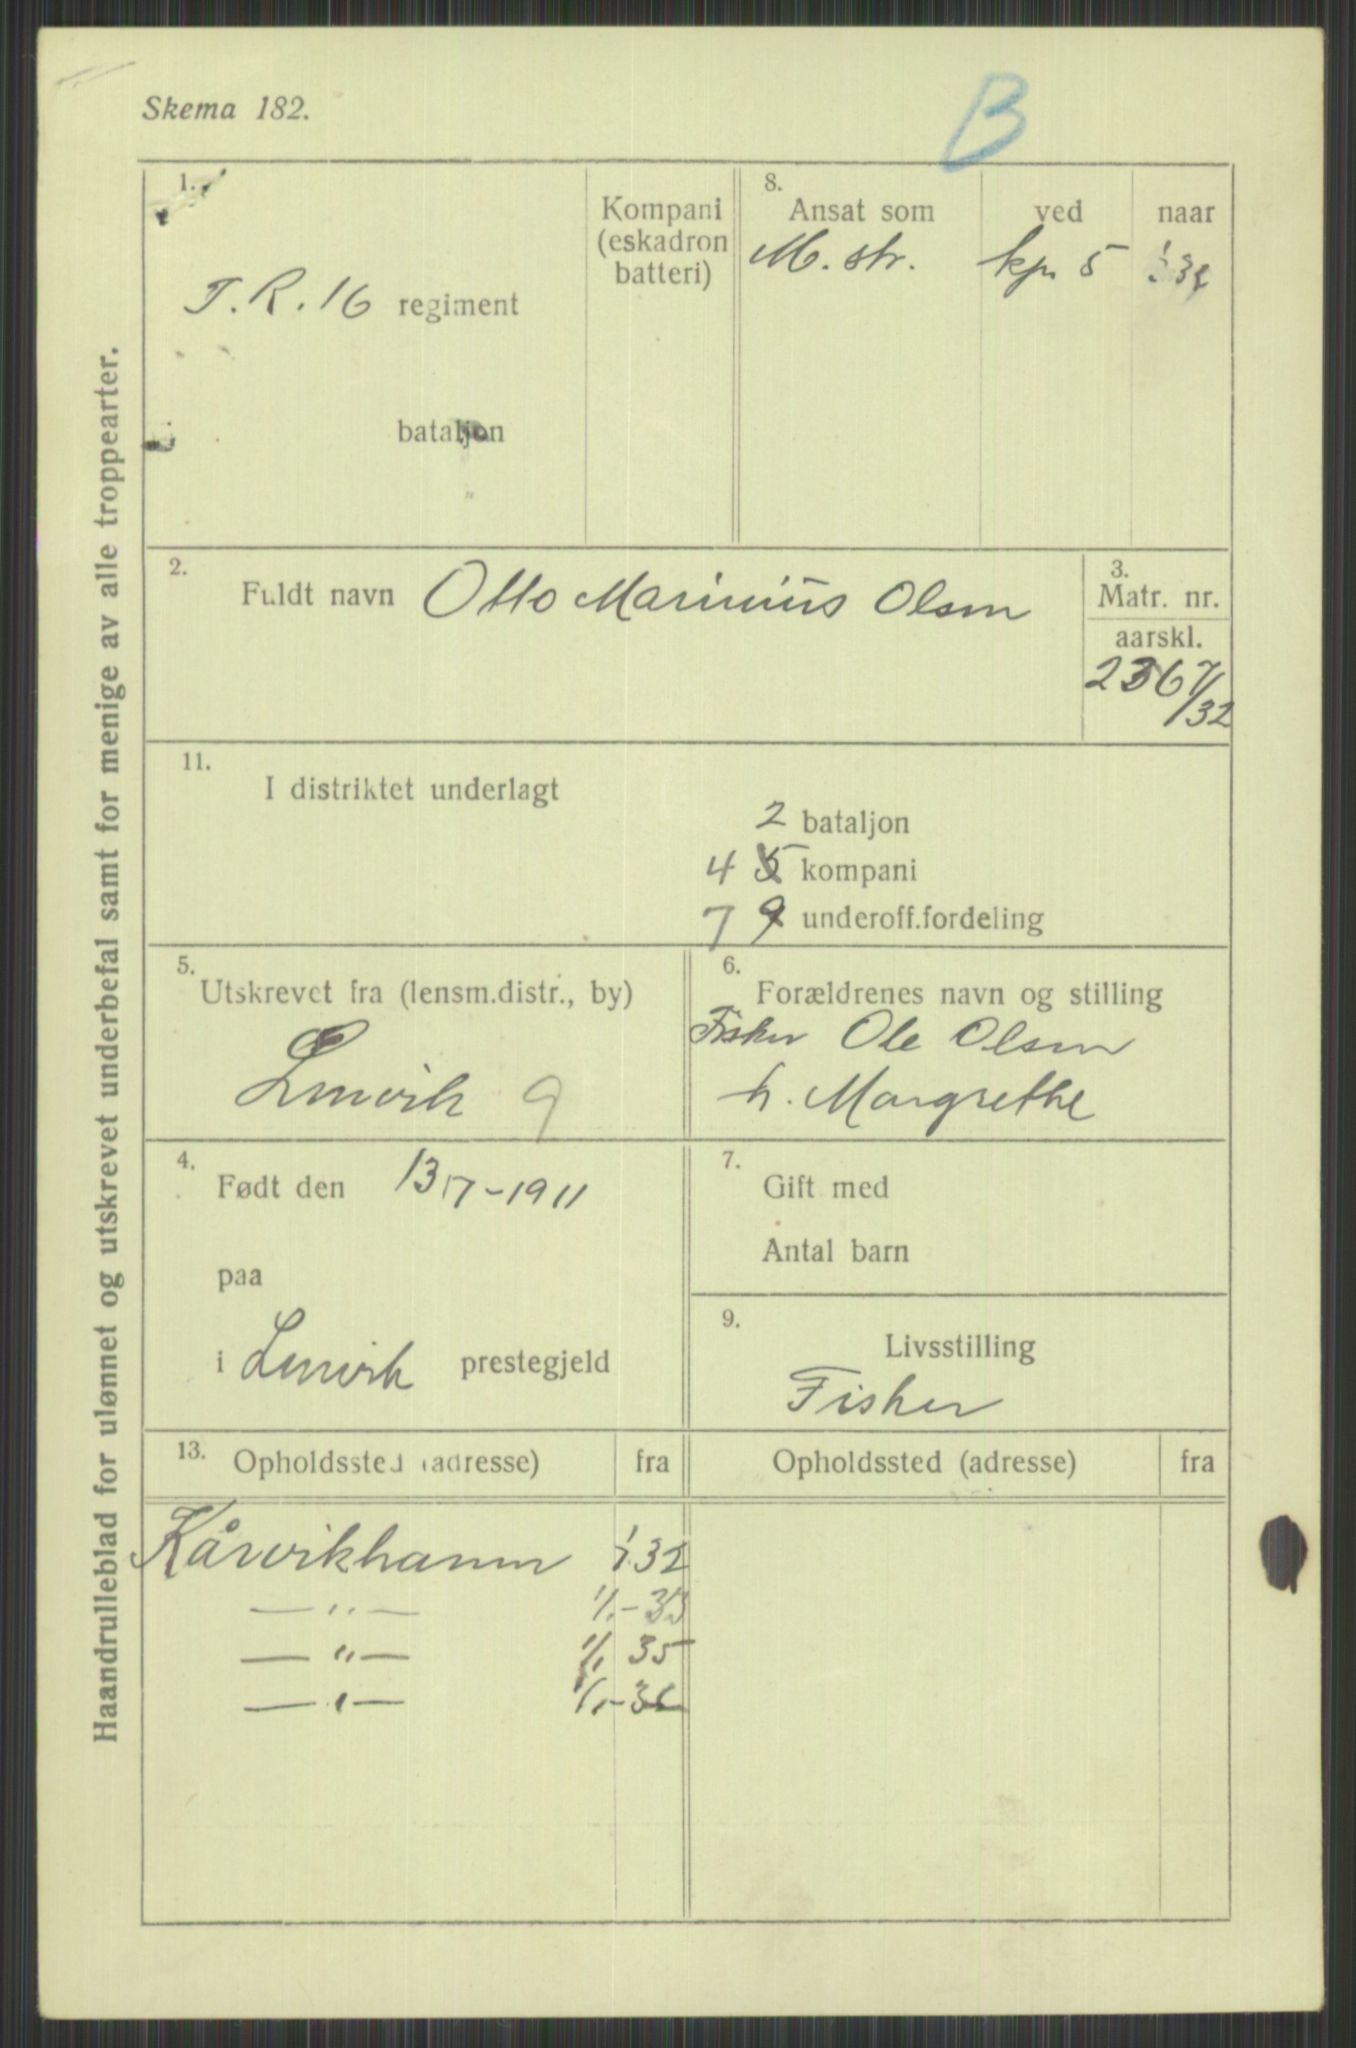 Skema 182.
B
Haandrulleblad for ulønnet og utskrevet underbefal samt for menige av alle troppearter.
1.
I. R. 16 regiment
bataljon
Kompani
(eskadron
batteri)
8.
Ansat som ved naar
M. str. kp. 5
2.
Fuldt navn Otto Marinius Olsen
3.
Matr. nr.
aarskl.
2367/32
11.
I distriktet underlagt
2 bataljon
4 5 kompani
7 9 underoff.fordeling
5.
Utskrevet fra (lensm.distr., by)
Lenvik 9
6.
Forældrenes navn og stilling
Fisker Ole Olsen
h. Margrethe
4.
Født den 13/7-1911
paa
i Lenvik prestegjeld
7.
Gift med
Antal barn
9.
Livsstilling
Fisker
13. Opholdssted (adresse) fra
Opholdssted (adresse) fra
Kårvikhamn 1/1 32
— " — 1/1-33
— " — 1/1 35
— " — 1/1-36